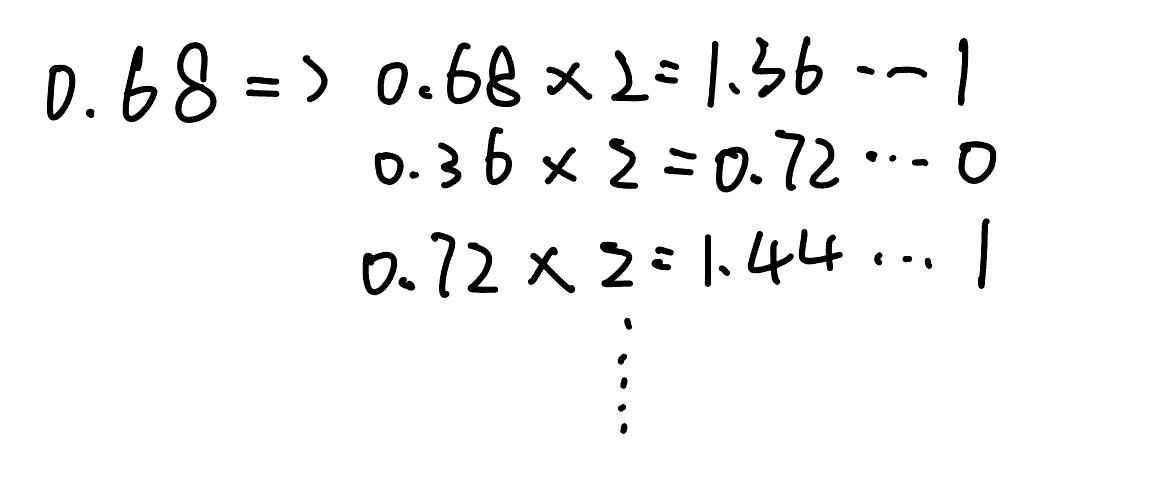 0.68 => 0.68 × 2 = 1.36 ... 1
0.36 × 2 = 0.72 ... 0
0.72 × 2 = 1.44 ... 1
⋮